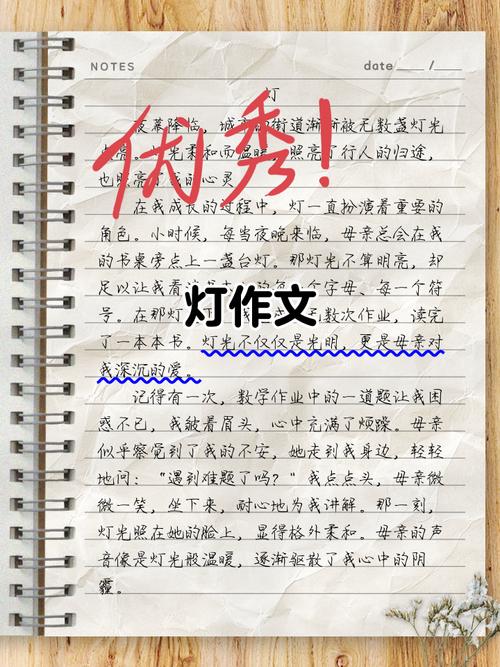 NOTES
date ____ / ____
灯
夜幕降临，城市的街道渐渐被无数盏灯光
光柔和而温暖，照亮了行人的归途，
也照亮了我的心灵
优秀！
在我成长的过程中，灯一直扮演着重要的
角色。小时候，每当夜晚来临，母亲总会在我
的书桌旁点上一盏台灯。那灯光不算明亮，却
足以让我看清 个字母、每一个符
灯作文
号。在那灯 数次作业，读完
了一本本书。灯光不仅仅是光明，更是母亲对
我深沉的爱。
记得有一次，数学作业中的一道题让我困
惑不已，我皱着眉头，心中充满了烦躁。母亲
似乎察觉到了我的不安，她走到我身边，轻轻
地问：“遇到难题了吗？”我点点头，母亲微
微一笑，坐下来，耐心地为我讲解。那一刻，
灯光照在她的脸上，显得格外柔和。母亲的声
音像是灯光般温暖，逐渐驱散了我心中的阴
霾。